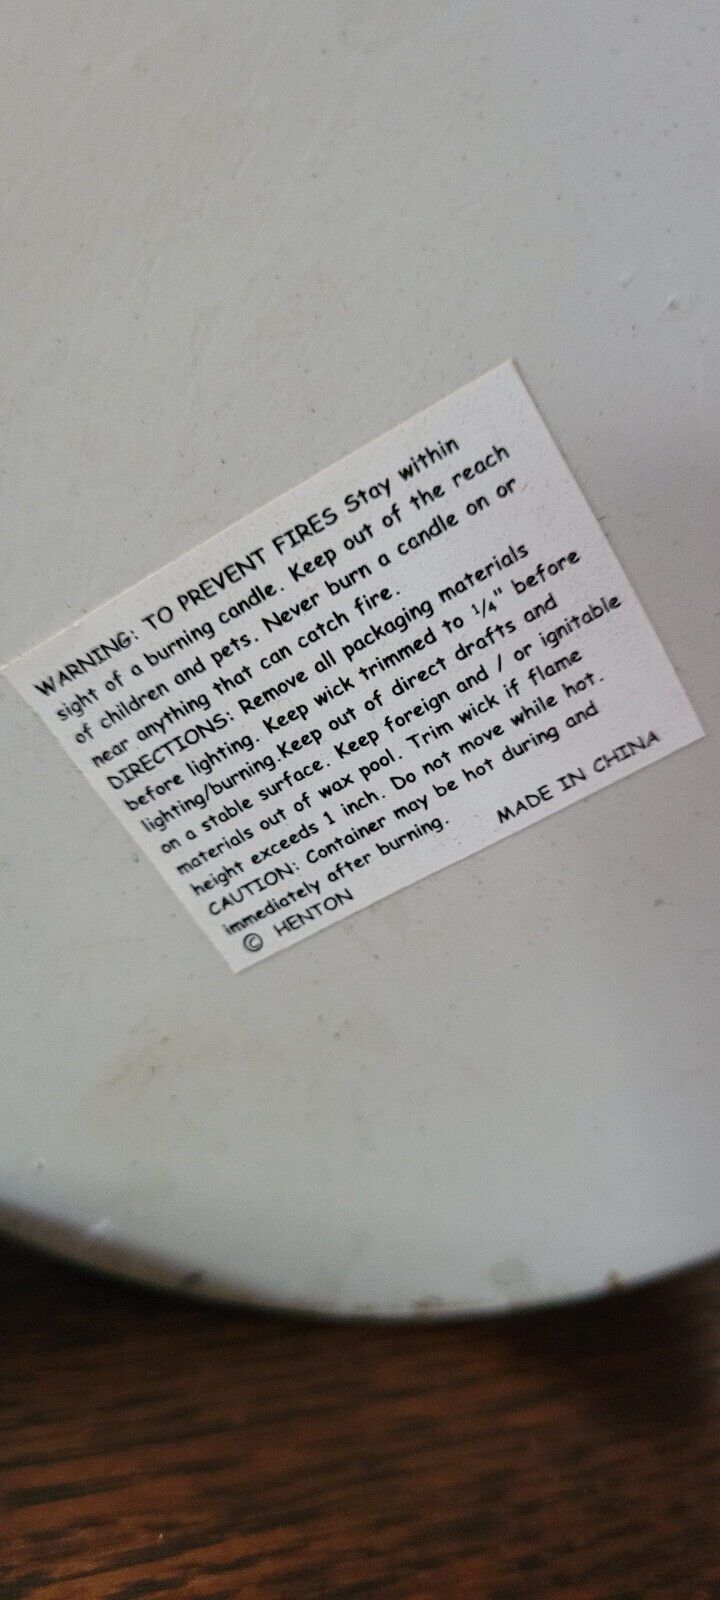 WARNING: TO PREVENT FIRES Stay within
sight of a burning candle. Keep out of the reach
of children and pets. Never burn a candle on or
near anything that can catch fire.
DIRECTIONS: Remove all packaging materials
before lighting. Keep wick trimmed to 1/4" before
lighting/burning.Keep out of direct drafts and
on a stable surface. Keep foreign and / or ignitable
materials out of wax pool. Trim wick if flame
height exceeds 1 inch. Do not move while hot.
CAUTION: Container may be hot during and
immediately after burning.
© HENTON MADE IN CHINA